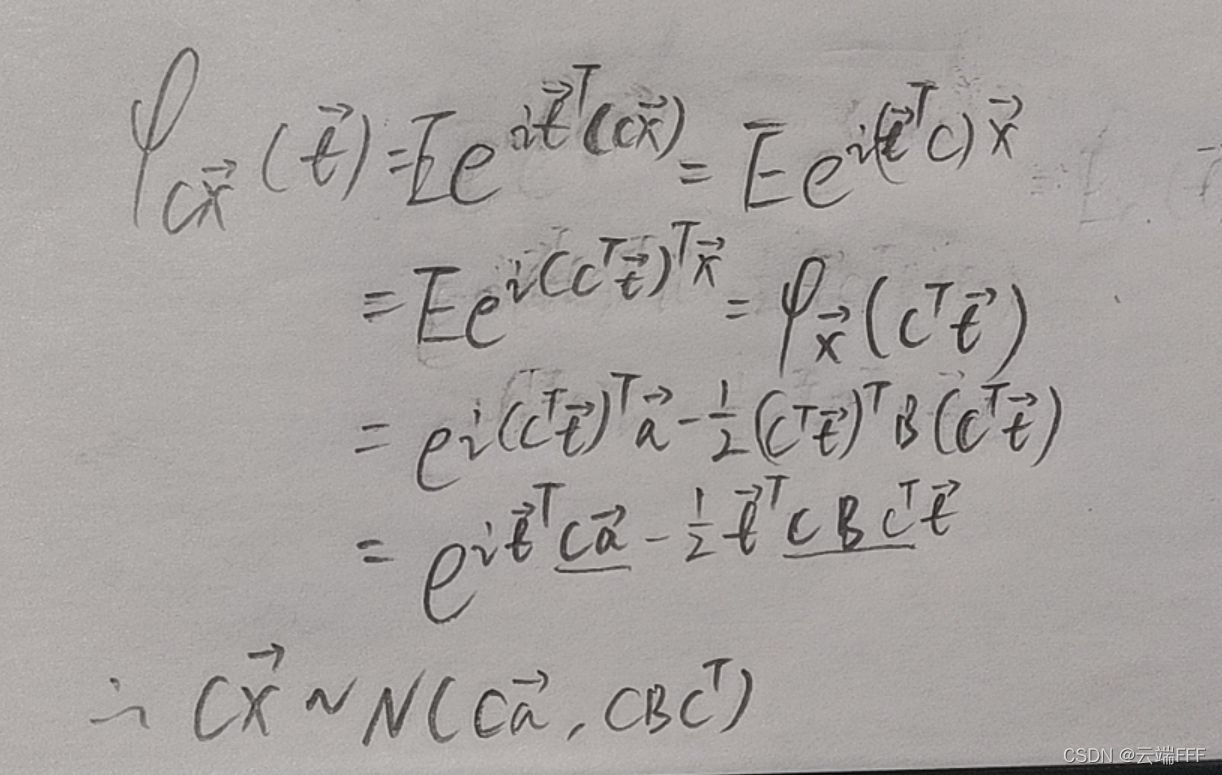 φ_{C\vec{x}}(\vec{t}) = Ee^{i\vec{t}^T(C\vec{x})} = Ee^{i(\vec{t}^TC)\vec{x}}
= Ee^{i(C^T\vec{t})^T\vec{x}} = φ_{\vec{x}}(C^T\vec{t})
= e^{i(C^T\vec{t})^T\vec{a} - \frac{1}{2}(C^T\vec{t})^TB(C^T\vec{t})}
= e^{i\vec{t}^T\underline{C\vec{a}} - \frac{1}{2}\vec{t}^T\underline{CBC^T}\vec{t}}
∴ C\vec{X} ~ N(C\vec{a}, CBC^T)
CSDN @云端FFF